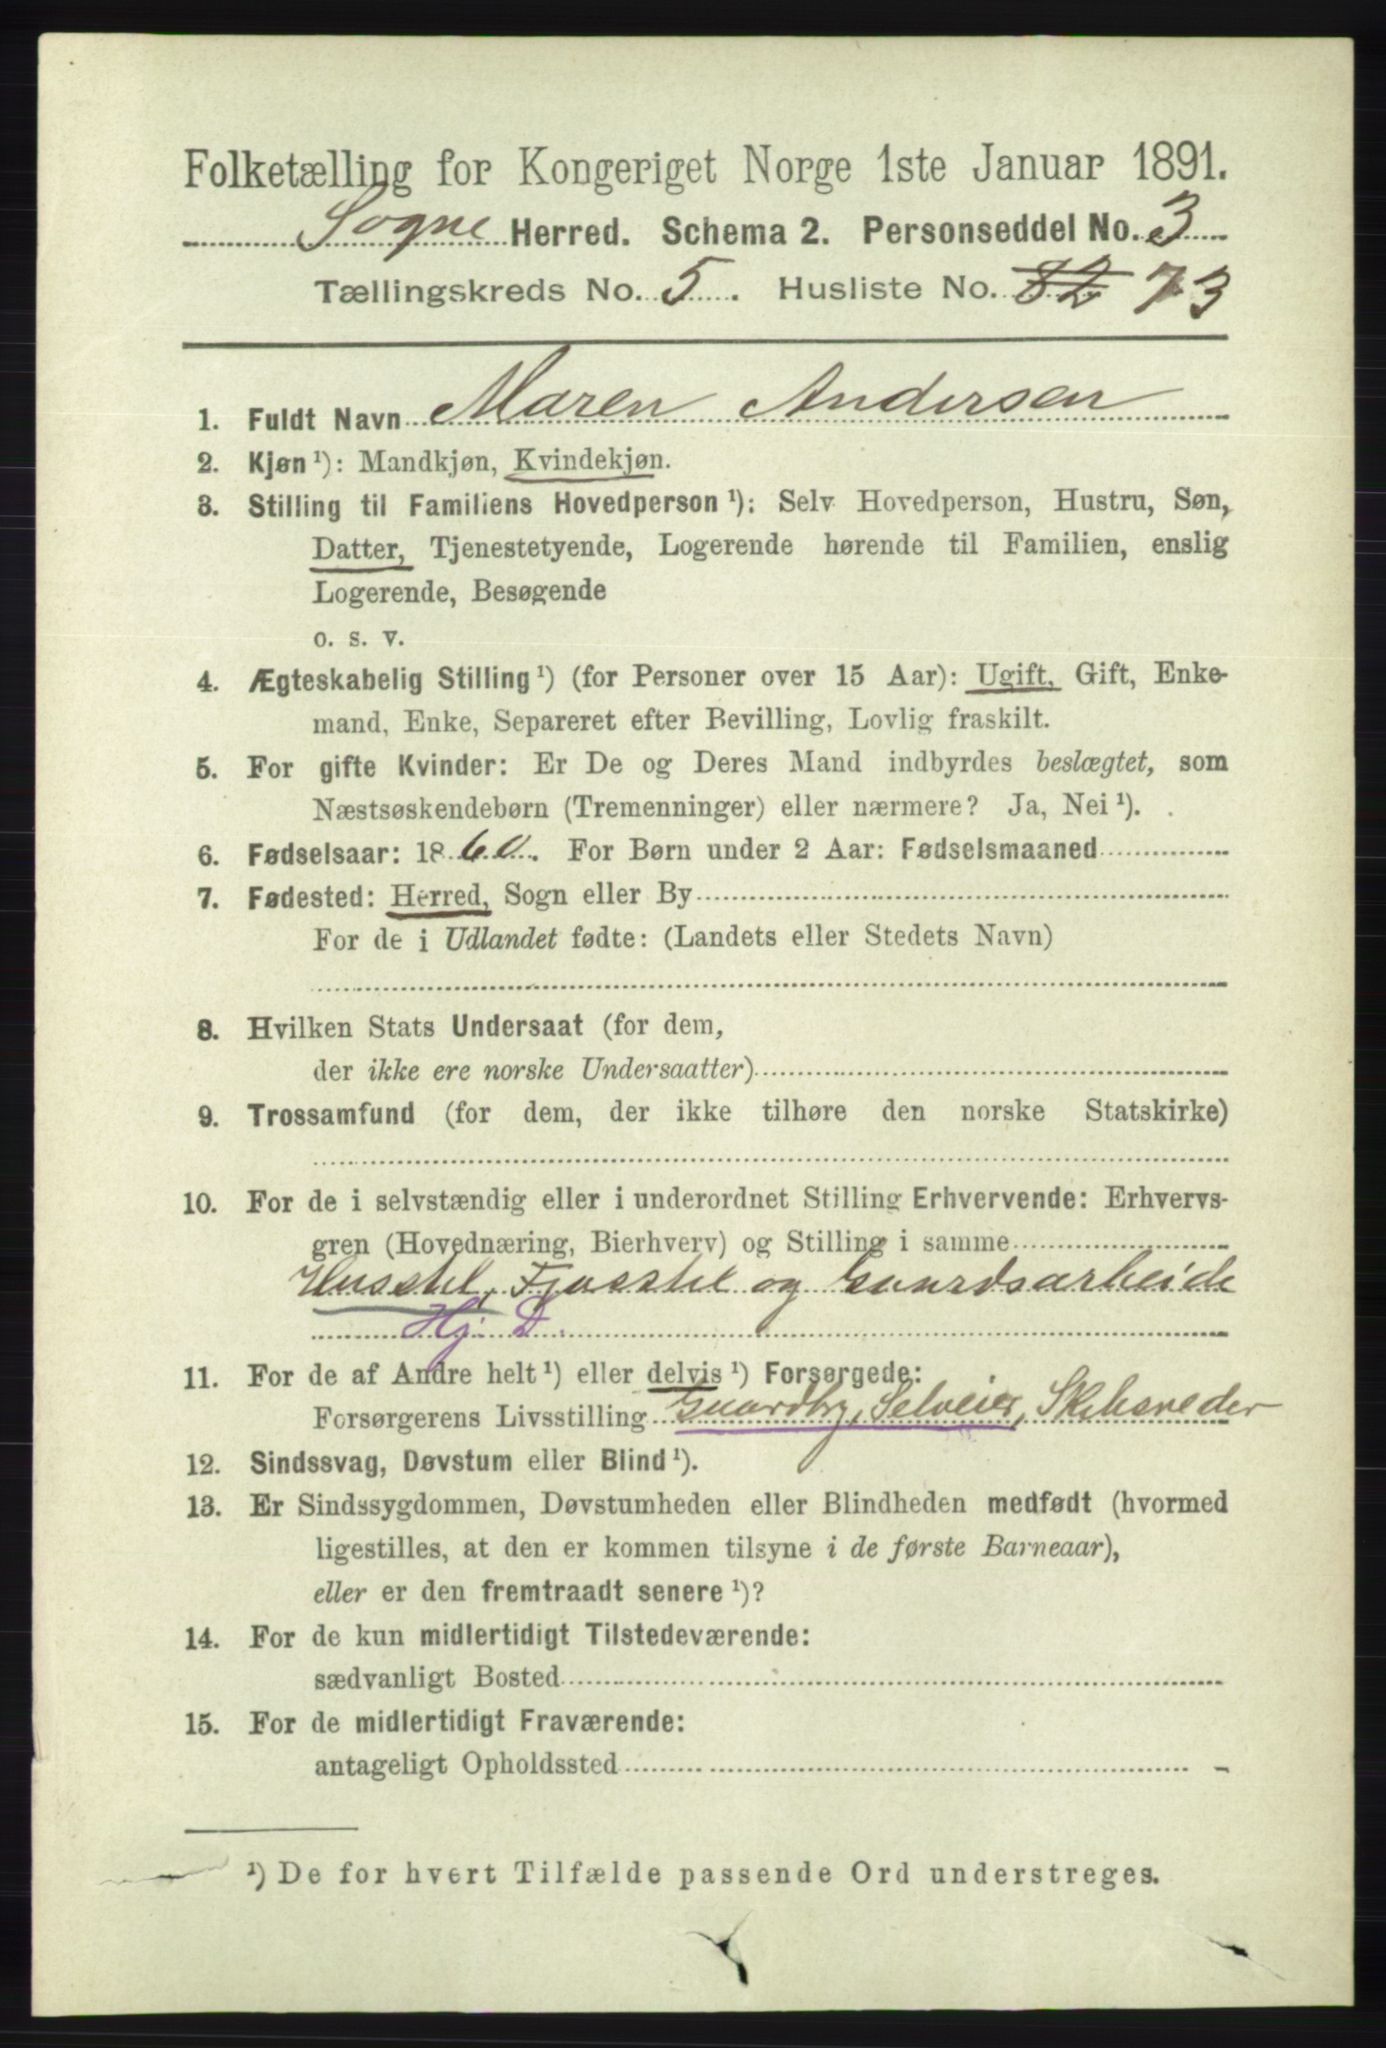 Folketælling for Kongeriget Norge 1ste Januar 1891.
Sogne Herred. Schema 2. Personseddel No. 3
Tællingskreds No. 5. Husliste No. 82 73
1. Fuldt Navn Maren Andersen
2. Kjøn ¹): Mandkjøn, Kvindekjøn.
3. Stilling til Familiens Hovedperson ¹): Selv Hovedperson, Hustru, Søn,
Datter, Tjenestetyende, Logerende hørende til Familien, enslig
Logerende, Besøgende
o. s. v.
4. Ægteskabelig Stilling ¹) (for Personer over 15 Aar): Ugift, Gift, Enke-
mand, Enke, Separeret efter Bevilling, Lovlig fraskilt.
5. For gifte Kvinder: Er De og Deres Mand indbyrdes beslægtet, som
Næstsøskendebørn (Tremenninger) eller nærmere? Ja, Nei ¹).
6. Fødselsaar: 1860. For Børn under 2 Aar: Fødselsmaaned
7. Fødested: Herred, Sogn eller By
For de i Udlandet fødte: (Landets eller Stedets Navn)
8. Hvilken Stats Undersaat (for dem,
der ikke ere norske Undersaatter)
9. Trossamfund (for dem, der ikke tilhøre den norske Statskirke)
10. For de i selvstændig eller i underordnet Stilling Erhvervende: Erhvervs-
gren (Hovednæring, Bierhverv) og Stilling i samme
Husstel, Fjøsstel og Gaardsarbeide
Hj. D.
11. For de af Andre helt ¹) eller delvis ¹) Forsørgede:
Forsørgerens Livsstilling Gaardbr, Selveier,
12. Sindssvag, Døvstum eller Blind ¹).
13. Er Sindssygdommen, Døvstumheden eller Blindheden medfødt (hvormed
ligestilles, at den er kommen tilsyne i de første Barneaar),
eller er den fremtraadt senere ¹)?
14. For de kun midlertidigt Tilstedeværende:
sædvanligt Bosted
15. For de midlertidigt Fraværende:
antageligt Opholdssted
¹) De for hvert Tilfælde passende Ord understreges.